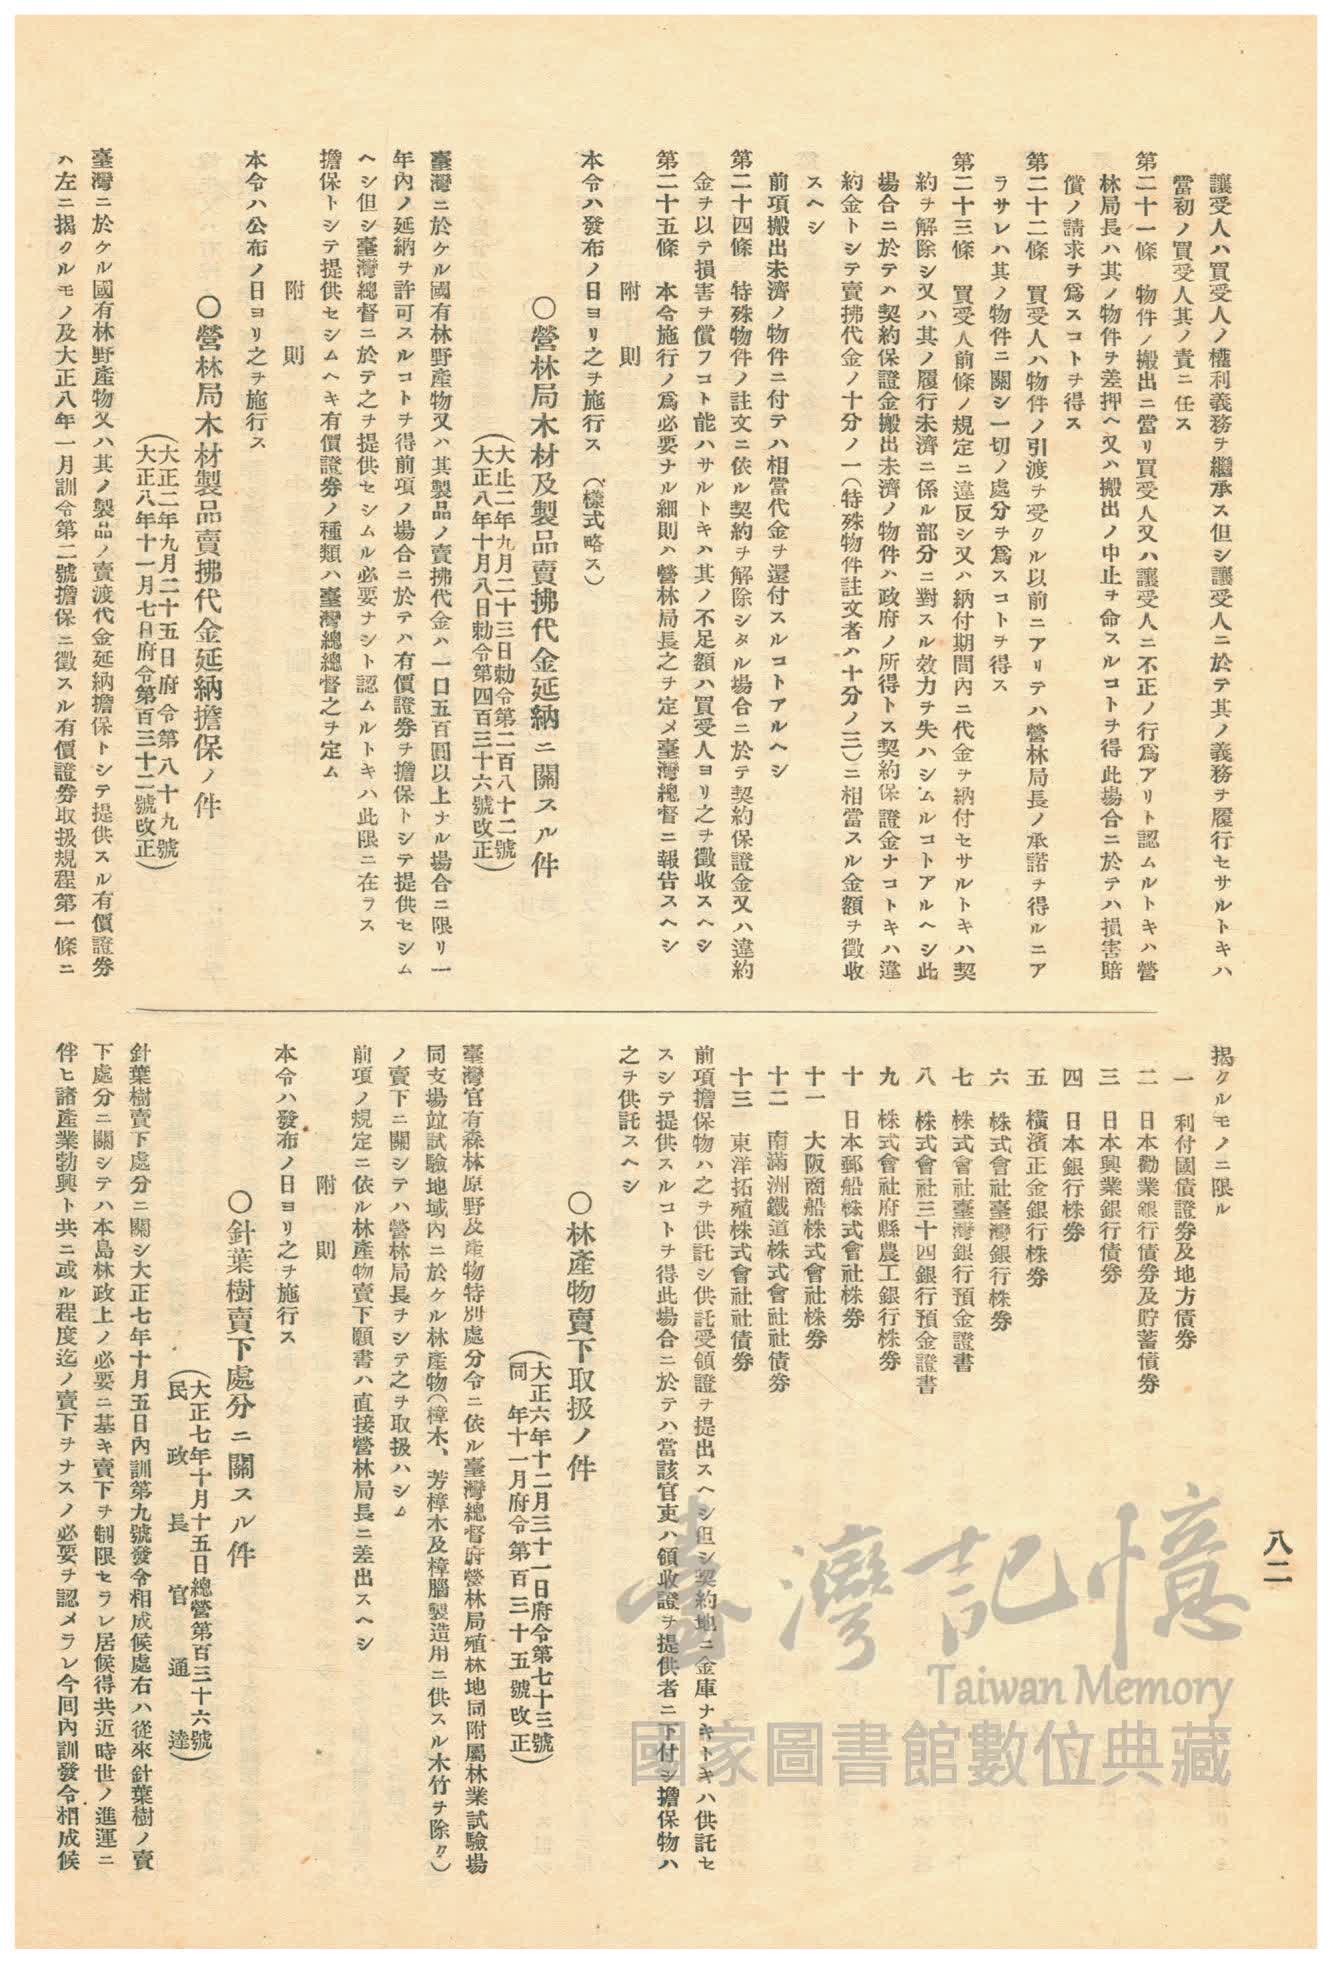 八二
讓受人ハ買受人ノ權利義務ヲ繼承ス但シ讓受人ニ於テ其ノ義務ヲ履行セサルトキハ
當初ノ買受人其ノ責ニ任ス
第二十一條　物件ノ搬出ニ當リ買受人又ハ讓受人ニ不正ノ行爲アリト認ムルトキハ營
林局長ハ其ノ物件ヲ差押ヘ又ハ搬出ノ中止ヲ命スルコトヲ得此場合ニ於テハ損害賠
償ノ請求ヲ爲スコトヲ得ス
第二十二條　買受人ハ物件ノ引渡ヲ受クル以前ニアリテハ營林局長ノ承諾ヲ得ルニア
ラサレハ其ノ物件ニ關シ一切ノ處分ヲ爲スコトヲ得ス
第二十三條　買受人前條ノ規定ニ違反シ又ハ納付期間內ニ代金ヲ納付セサルトキハ契
約ヲ解除シ又ハ其ノ履行未濟ニ係ル部分ニ對スル效力ヲ失ハシムルコトアルヘシ此
場合ニ於テハ契約保證金搬出未濟ノ物件ハ政府ノ所得トス契約保證金ナコトキハ違
約金トシテ賣拂代金ノ十分ノ一(特殊物件註文者ハ十分ノ三)ニ相當スル金額ヲ徵收
スヘシ
前項搬出未濟ノ物件ニ付テハ相當代金ヲ還付スルコトアルヘシ
第二十四條　特殊物件ノ註文ニ依ル契約ヲ解除シタル場合ニ於テ契約保證金又ハ違約
金ヲ以テ損害ヲ償フコト能ハサルトキハ其ノ不足額ハ買受人ヨリ之ヲ徵收スヘシ
第二十五條　本令施行ノ爲必要ナル細則ハ營林局長之ヲ定メ臺灣總督ニ報告スヘシ
附　則
本令ハ發布ノ日ヨリ之ヲ施行ス　(樣式略ス)
○營林局木材及製品賣拂代金延納ニ關スル件
(大正二年九月二十三日勅令第二百八十二號
大正八年十月八日勅令第四百三十六號改正)
臺灣ニ於ケル國有林野產物又ハ其製品ノ賣拂代金ハ一口五百圓以上ナル場合ニ限リ一
年內ノ延納ヲ許可スルコトヲ得前項ノ場合ニ於テハ有價證券ヲ擔保トシテ提供セシム
ヘシ但シ臺灣總督ニ於テ之ヲ提供セシムル必要ナシト認ムルトキハ此限ニ在ラス
擔保トシテ提供セシムヘキ有價證券ノ種類ハ臺灣總總督之ヲ定ム
附　則
本令ハ公布ノ日ヨリ之ヲ施行ス
○營林局木材製品賣拂代金延納擔保ノ件
(大正二年九月二十五日府令第八十九號
大正八年十一月七日府令第百三十二號改正)
臺灣ニ於ケル國有林野產物又ハ其ノ製品ノ賣渡代金延納擔保トシテ提供スル有價證券
ハ左ニ揭クルモノ及大正八年一月訓令第二號擔保ニ徵スル有價證券取扱規程第一條ニ
揭クルモノニ限ル
一　利付國債證券及地方債券
二　日本勸業銀行債券及貯蓄債券
三　日本興業銀行債券
四　日本銀行株券
五　橫濱正金銀行株券
六　株式會社臺灣銀行株券
七　株式會社臺灣銀行預金證書
八　株式會社三十四銀行預金證書
九　株式會社府縣農工銀行株券
十　日本郵船株式會社株券
十一　大阪商船株式會社株券
十二　南滿洲鐵道株式會社社債券
十三　東洋拓殖株式會社社債券
前項擔保物ハ之ヲ供託シ供託受領證ヲ提出スヘシ但シ契約地ニ金庫ナキトキハ供託セ
スシテ提供スルコトヲ得此場合ニ於テハ當該官吏ハ領收證ヲ提供者ニ下付シ擔保物ハ
之ヲ供託スヘシ
○林產物賣下取扱ノ件
(大正六年十二月三十一日府令第七十三號
同　年十一月府令第百三十五號改正)
臺灣官有森林原野及產物特別處分令ニ依ル臺灣總督府營林局殖林地同附屬林業試驗場
同支場竝試驗地域內ニ於ケル林產物(樟木、芳樟木及樟腦製造用ニ供スル木竹ヲ除ク)
ノ賣下ニ關シテハ營林局長ヲシテ之ヲ取扱ハシム
前項ノ規定ニ依ル林產物賣下願書ハ直接營林局長ニ差出スヘシ
附　則
本令ハ發布ノ日ヨリ之ヲ施行ス
○針葉樹賣下處分ニ關スル件
(大正七年十月十五日總營第百三十六號
民政長官通達)
針葉樹賣下處分ニ關シ大正七年十月五日內訓第九號發令相成候處右ハ從來針葉樹ノ賣
下處分ニ關シテハ本島林政上ノ必要ニ基キ賣下ヲ制限セラレ居候得共近時世ノ進運ニ
伴ヒ諸產業勃興ト共ニ或ル程度迄ノ賣下ヲナスノ必要ヲ認メラレ今囘內訓發令相成候
臺灣記憶
Taiwan Memory
國家圖書館數位典藏